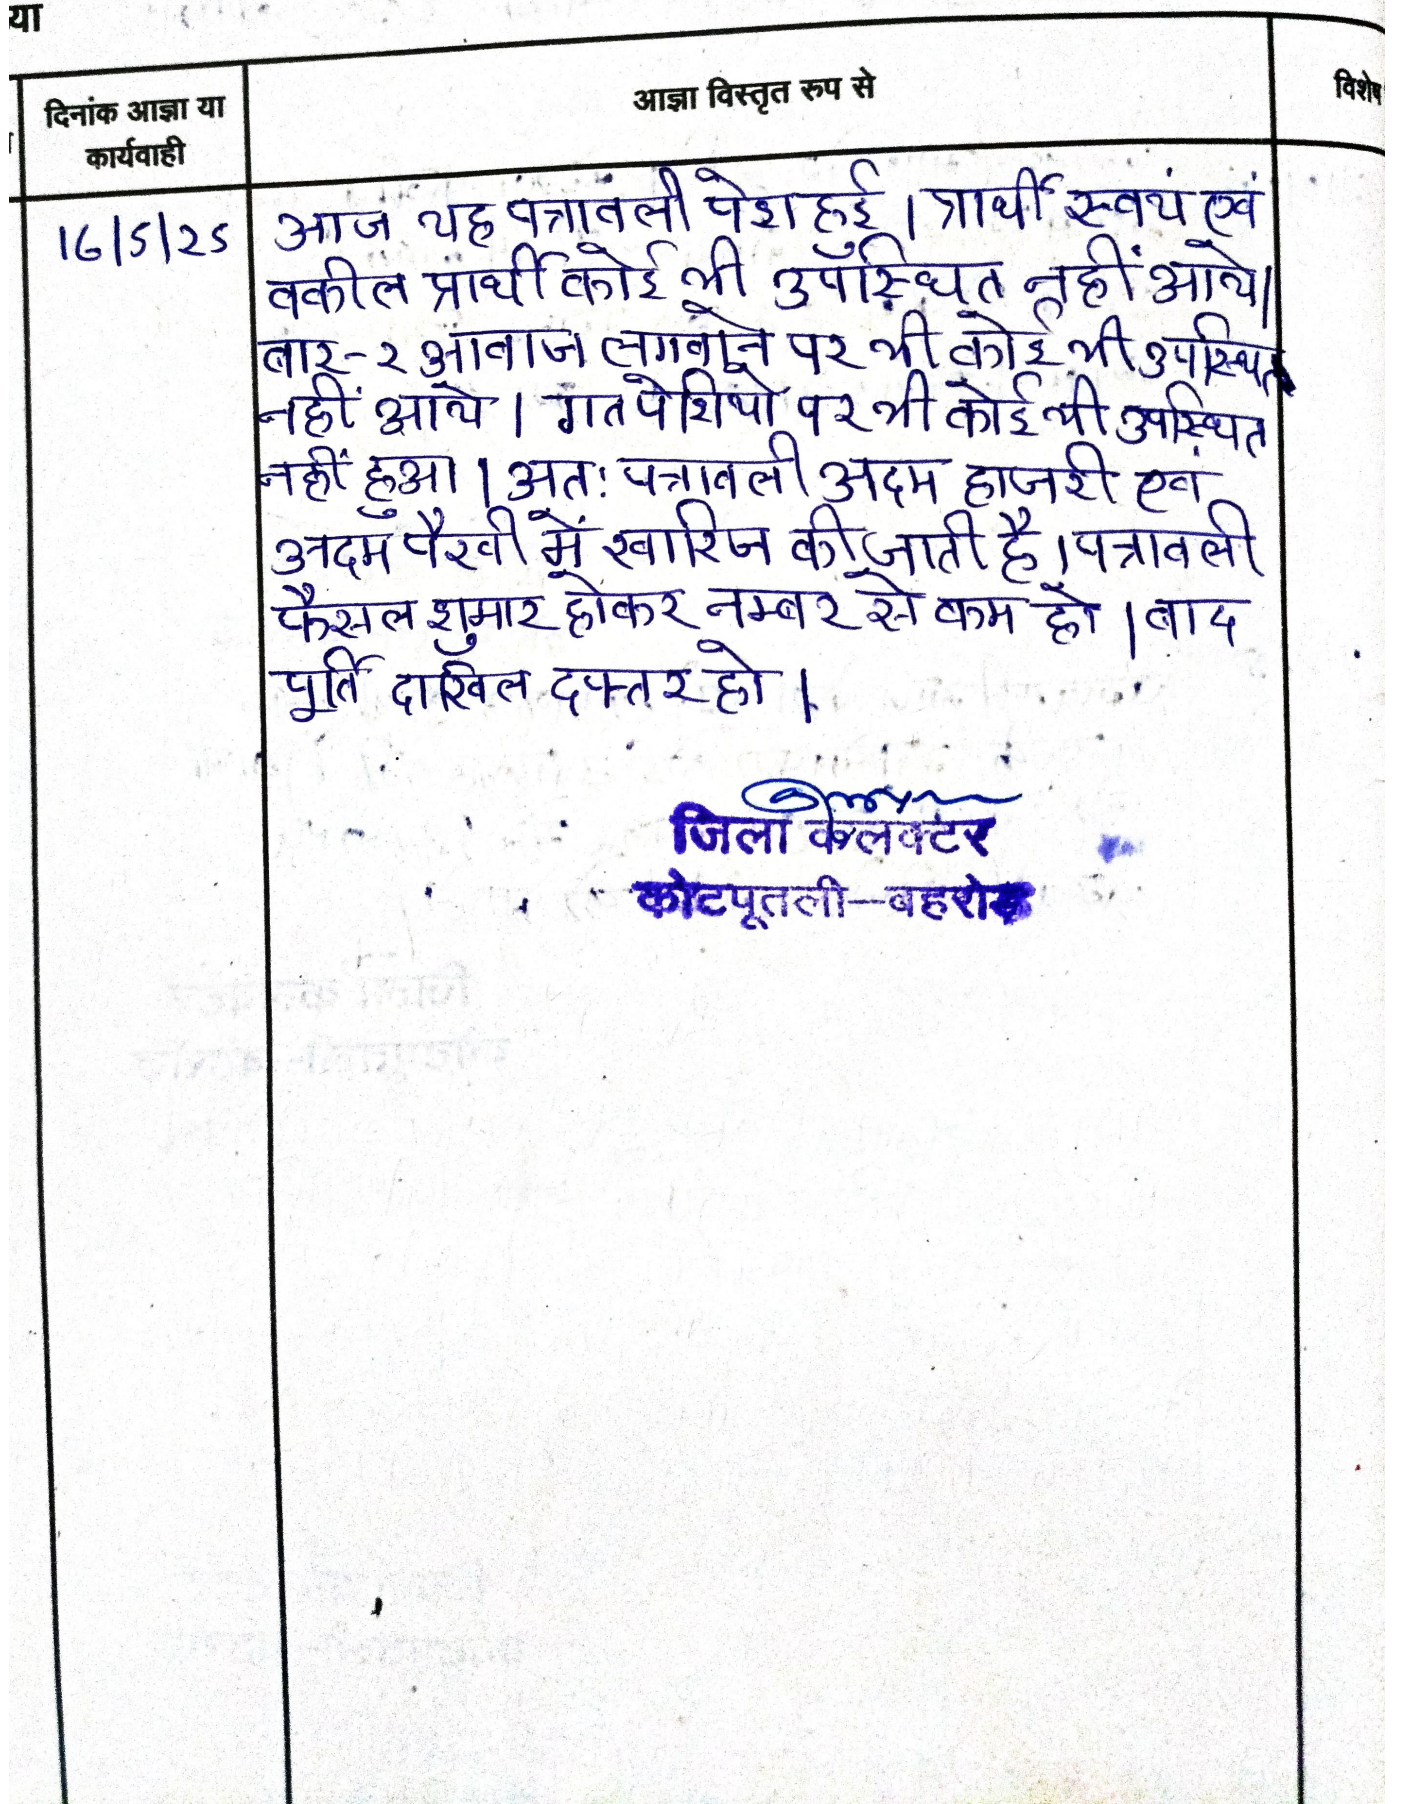 या
दिनांक आज्ञा या
कार्यवाही
आज्ञा विस्तृत रुप से
विशेष
16/5/25
आज यह पत्रावली पेश हुई । प्रार्थी स्वयं एवं
वकील प्रार्थी कोई भी उपस्थित नहीं आये।
बार-२ आवाज लगवाने पर भी कोई भी उपस्थित
नहीं आये । गत पेशियो पर भी कोई भी उपस्थित
नहीं हुआ । अतः पत्रावली अदम हाजरी एवं
अदम पैरवी में खारिज की जाती है । पत्रावली
फैसल शुमार होकर नम्बर से कम हो । बाद
पूर्ति दाखिल दफ्तर हो ।
जिला कलक्टर
कोटपूतली—बहरोड़